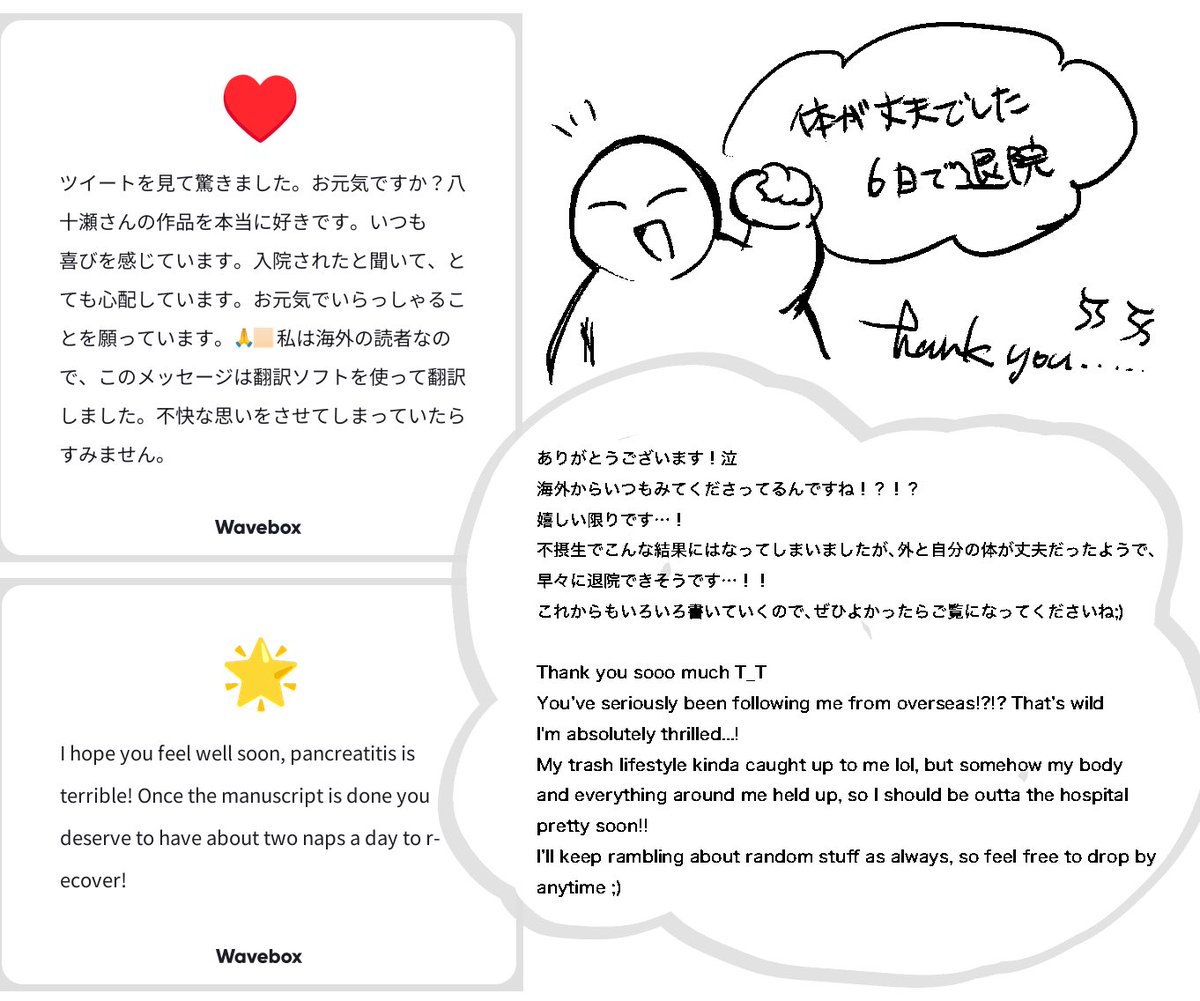 ツイートを見て驚きました。お元気ですか？八
十瀬さんの作品を本当に好きです。いつも
喜びを感じています。入院されたと聞いて、と
ても心配しています。お元気でいらっしゃるこ
とを願っています。🙏🏻私は海外の読者なの
で、このメッセージは翻訳ソフトを使って翻訳
しました。不快な思いをさせてしまっていたら
すみません。
Wavebox
I hope you feel well soon, pancreatitis is
terrible! Once the manuscript is done you
deserve to have about two naps a day to r-
ecover!
Wavebox
体が丈夫でした
6日で退院
Thank you.....
ありがとうございます！泣
海外からいつもみてくださってるんですね！？！？
嬉しい限りです…！
不摂生でこんな結果にはなってしまいましたが、外と自分の体が丈夫だったようで、
早々に退院できそうです…！！
これからもいろいろ書いていくので、ぜひよかったらご覧になってくださいね;)
Thank you sooo much T_T
You've seriously been following me from overseas!?!? That's wild
I'm absolutely thrilled...!
My trash lifestyle kinda caught up to me lol, but somehow my body
and everything around me held up, so I should be outta the hospital
pretty soon!!
I'll keep rambling about random stuff as always, so feel free to drop by
anytime ;)